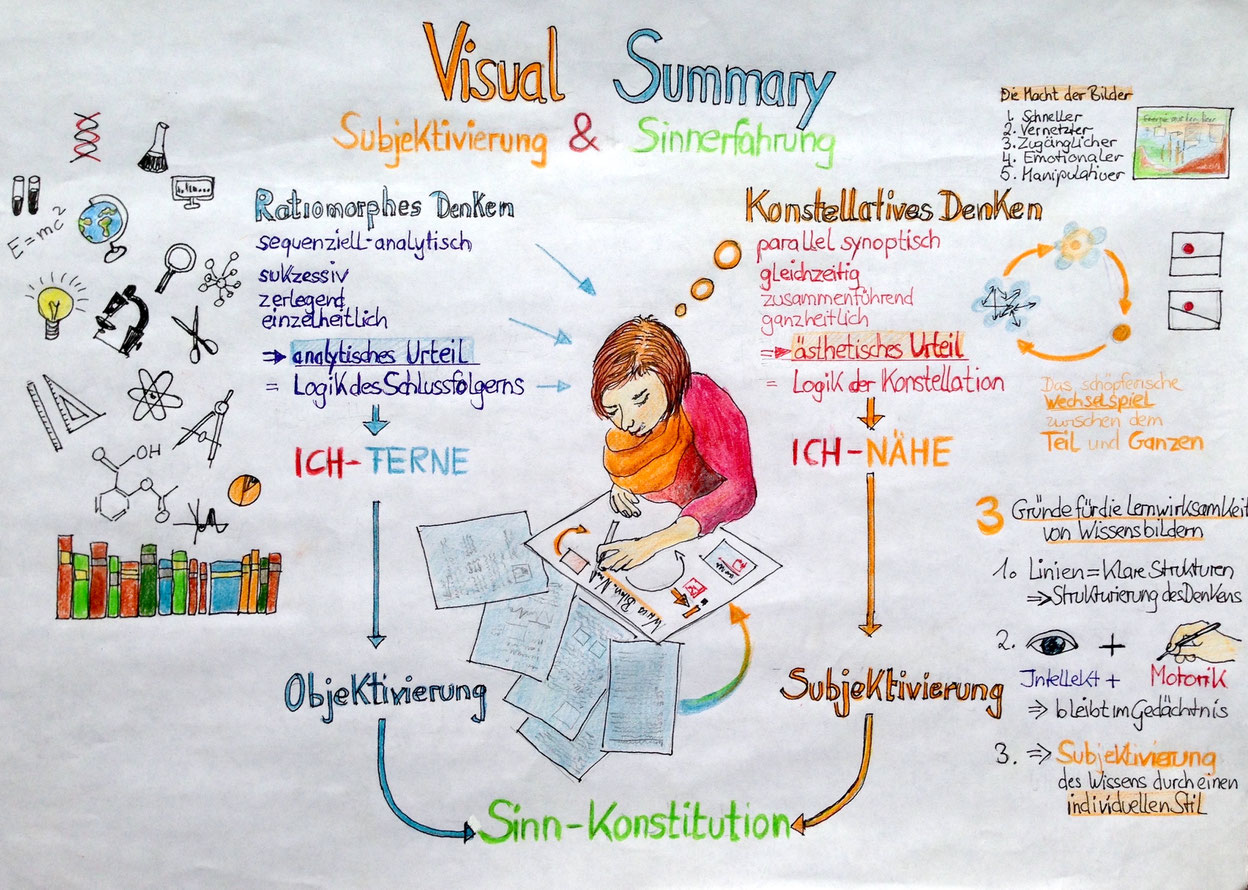 Visual Summary
Subjektivierung & Sinnerfahrung
Die Macht der Bilder
1. Schneller
2. Vernetzter
3. Zugänglicher
4. Emotionaler
5. Manipulativer
E=mc²
OH
O
O
Ratiomorphes Denken
sequenziell-analytisch
sukzessiv
zerlegend
einzelheitlich
⇒ analytisches Urteil
= Logik des Schlussfolgerns
ICH-TERNE
Objektivierung
Konstellatives Denken
parallel synoptisch
gleichzeitig
zusammenführend
ganzheitlich
⇒ ästhetisches Urteil
= Logik der Konstellation
ICH-NÄHE
Subjektivierung
Sinn-Konstitution
Das schöpferische
Wechselspiel
zwischen dem
Teil und Ganzen
3 Gründe für die Lernwirksamkeit
von Wissensbildern
1. Linien = Klare Strukturen
⇒ Strukturierung des Denkens
2. +
Intellekt + Motorik
⇒ bleibt im Gedächtnis
3. ⇒ Subjektivierung
des Wissens durch einen
individuellen Stil